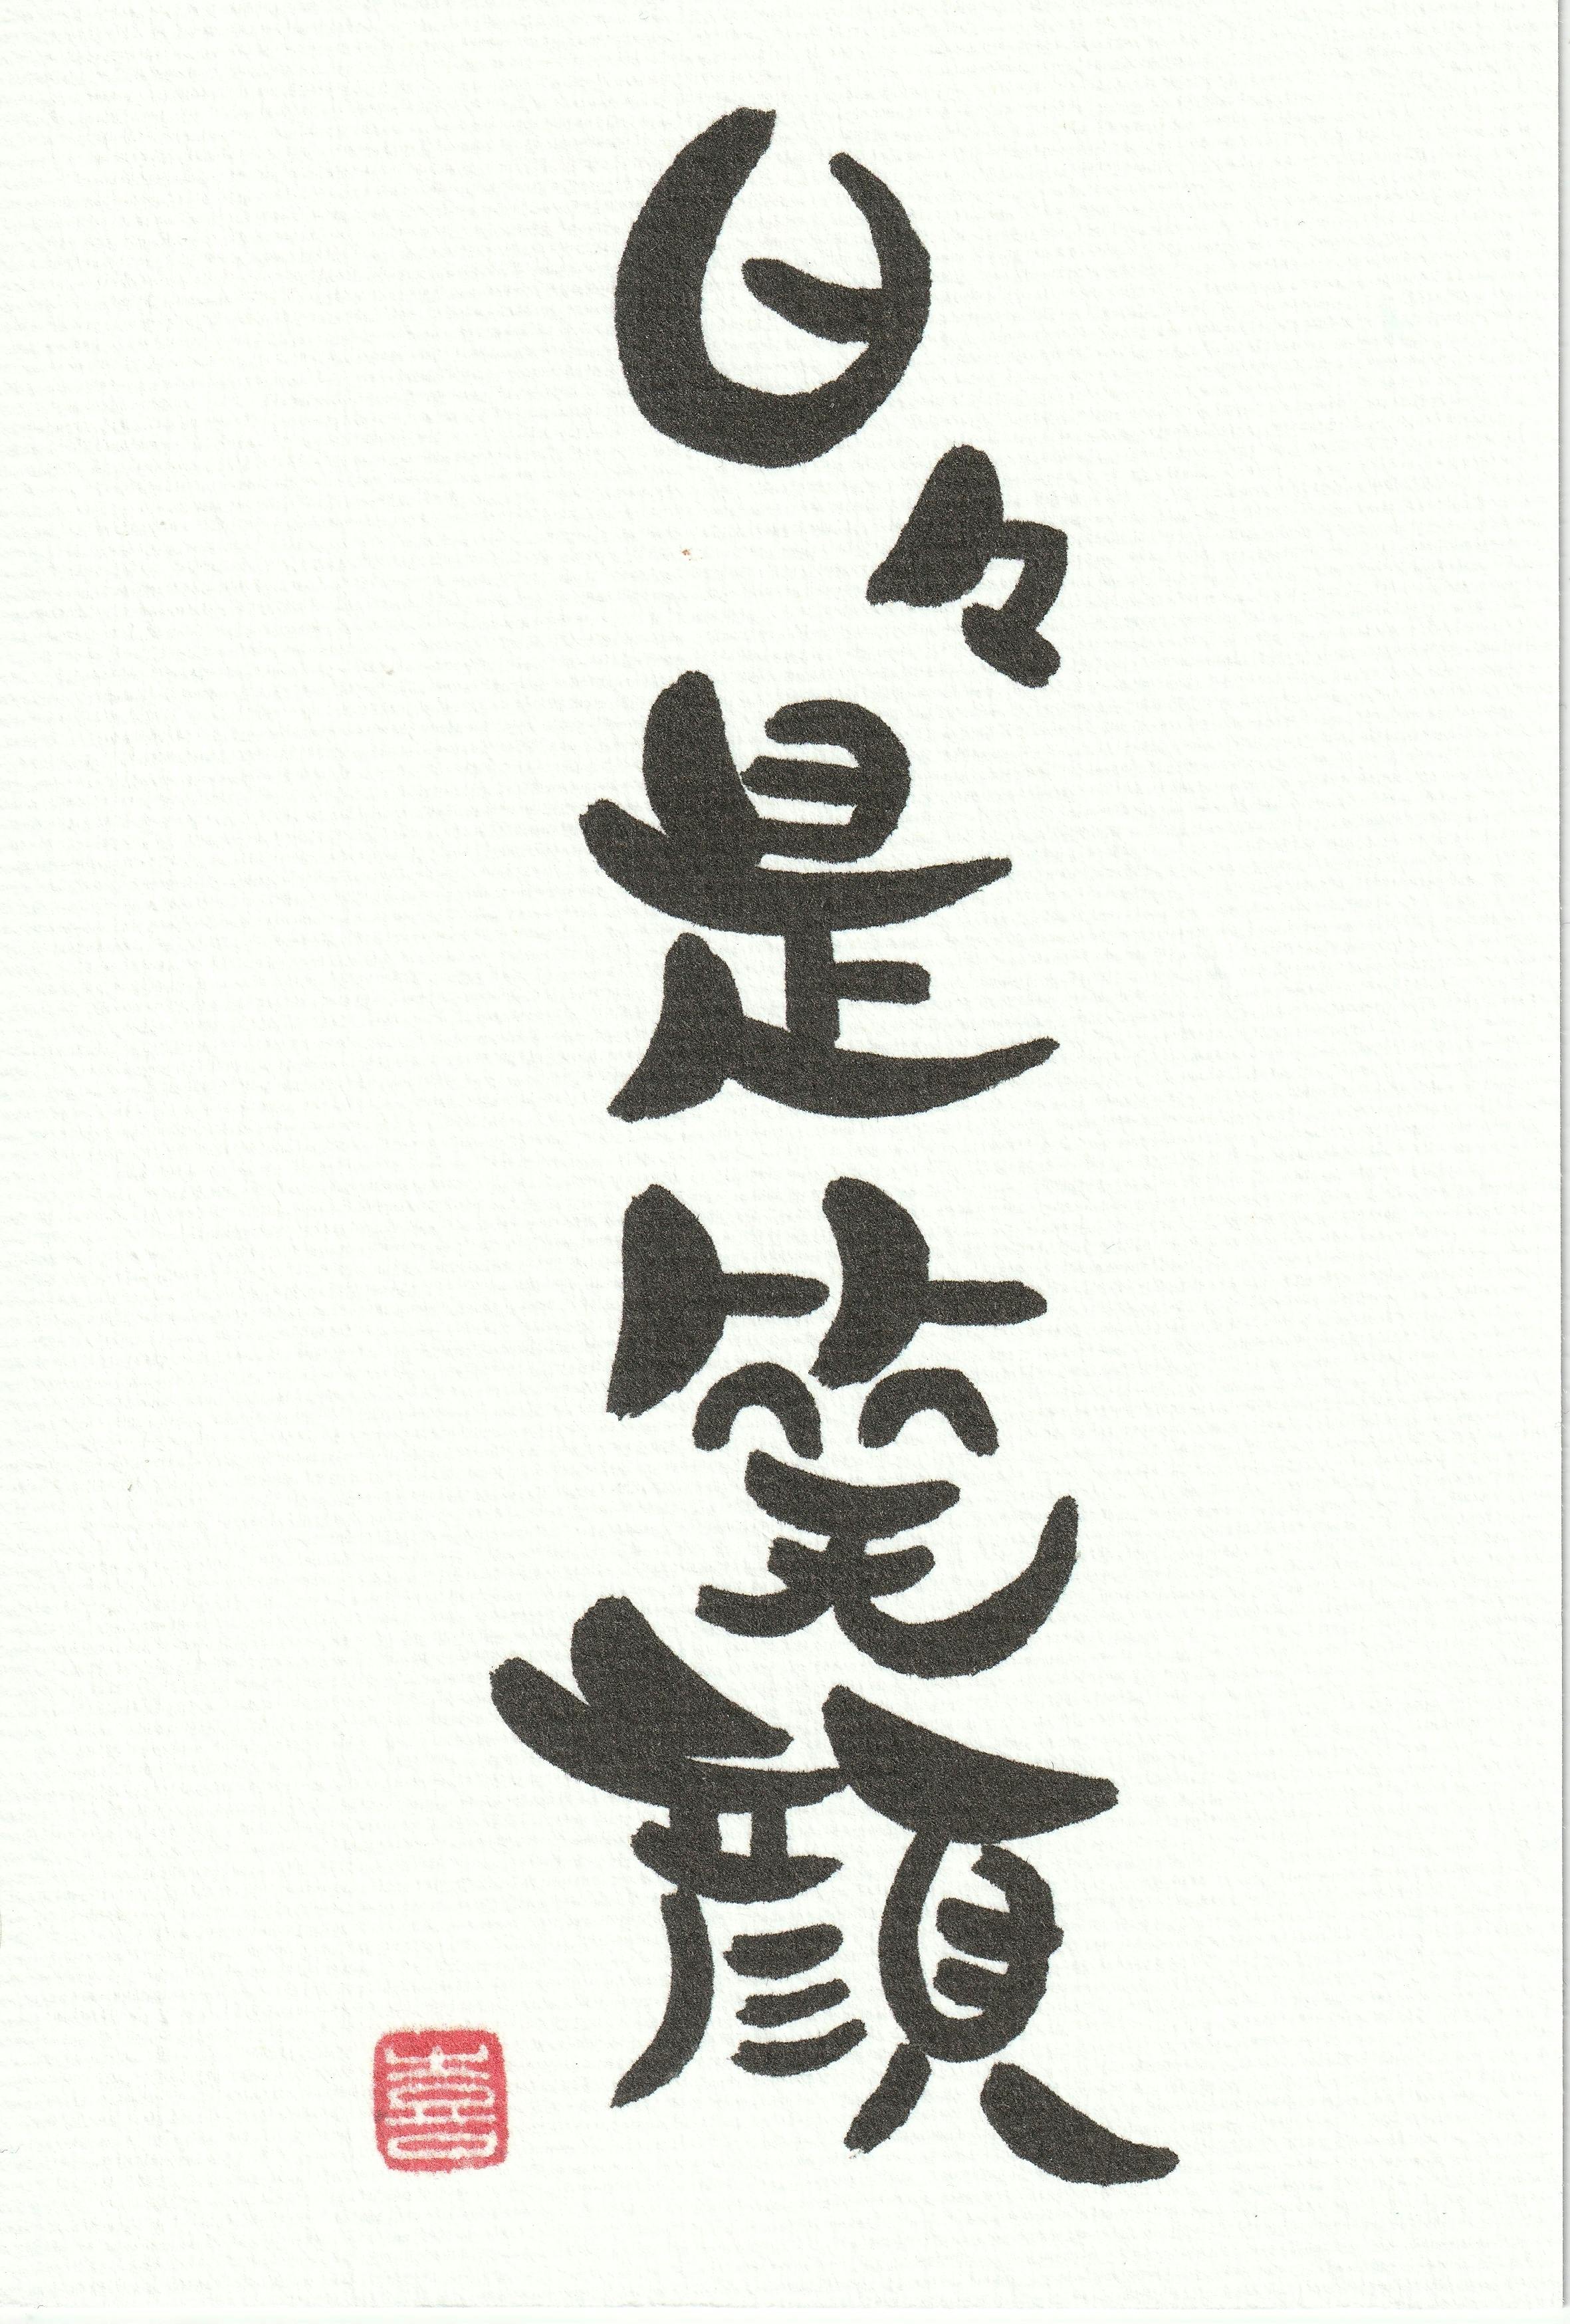 日々是笑顔